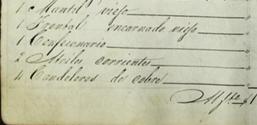 1. Mantel viejo
1. Frontal encarnado viejo
1. Confesionario
2. Atriles corrientes
4. Candeleros de cobre